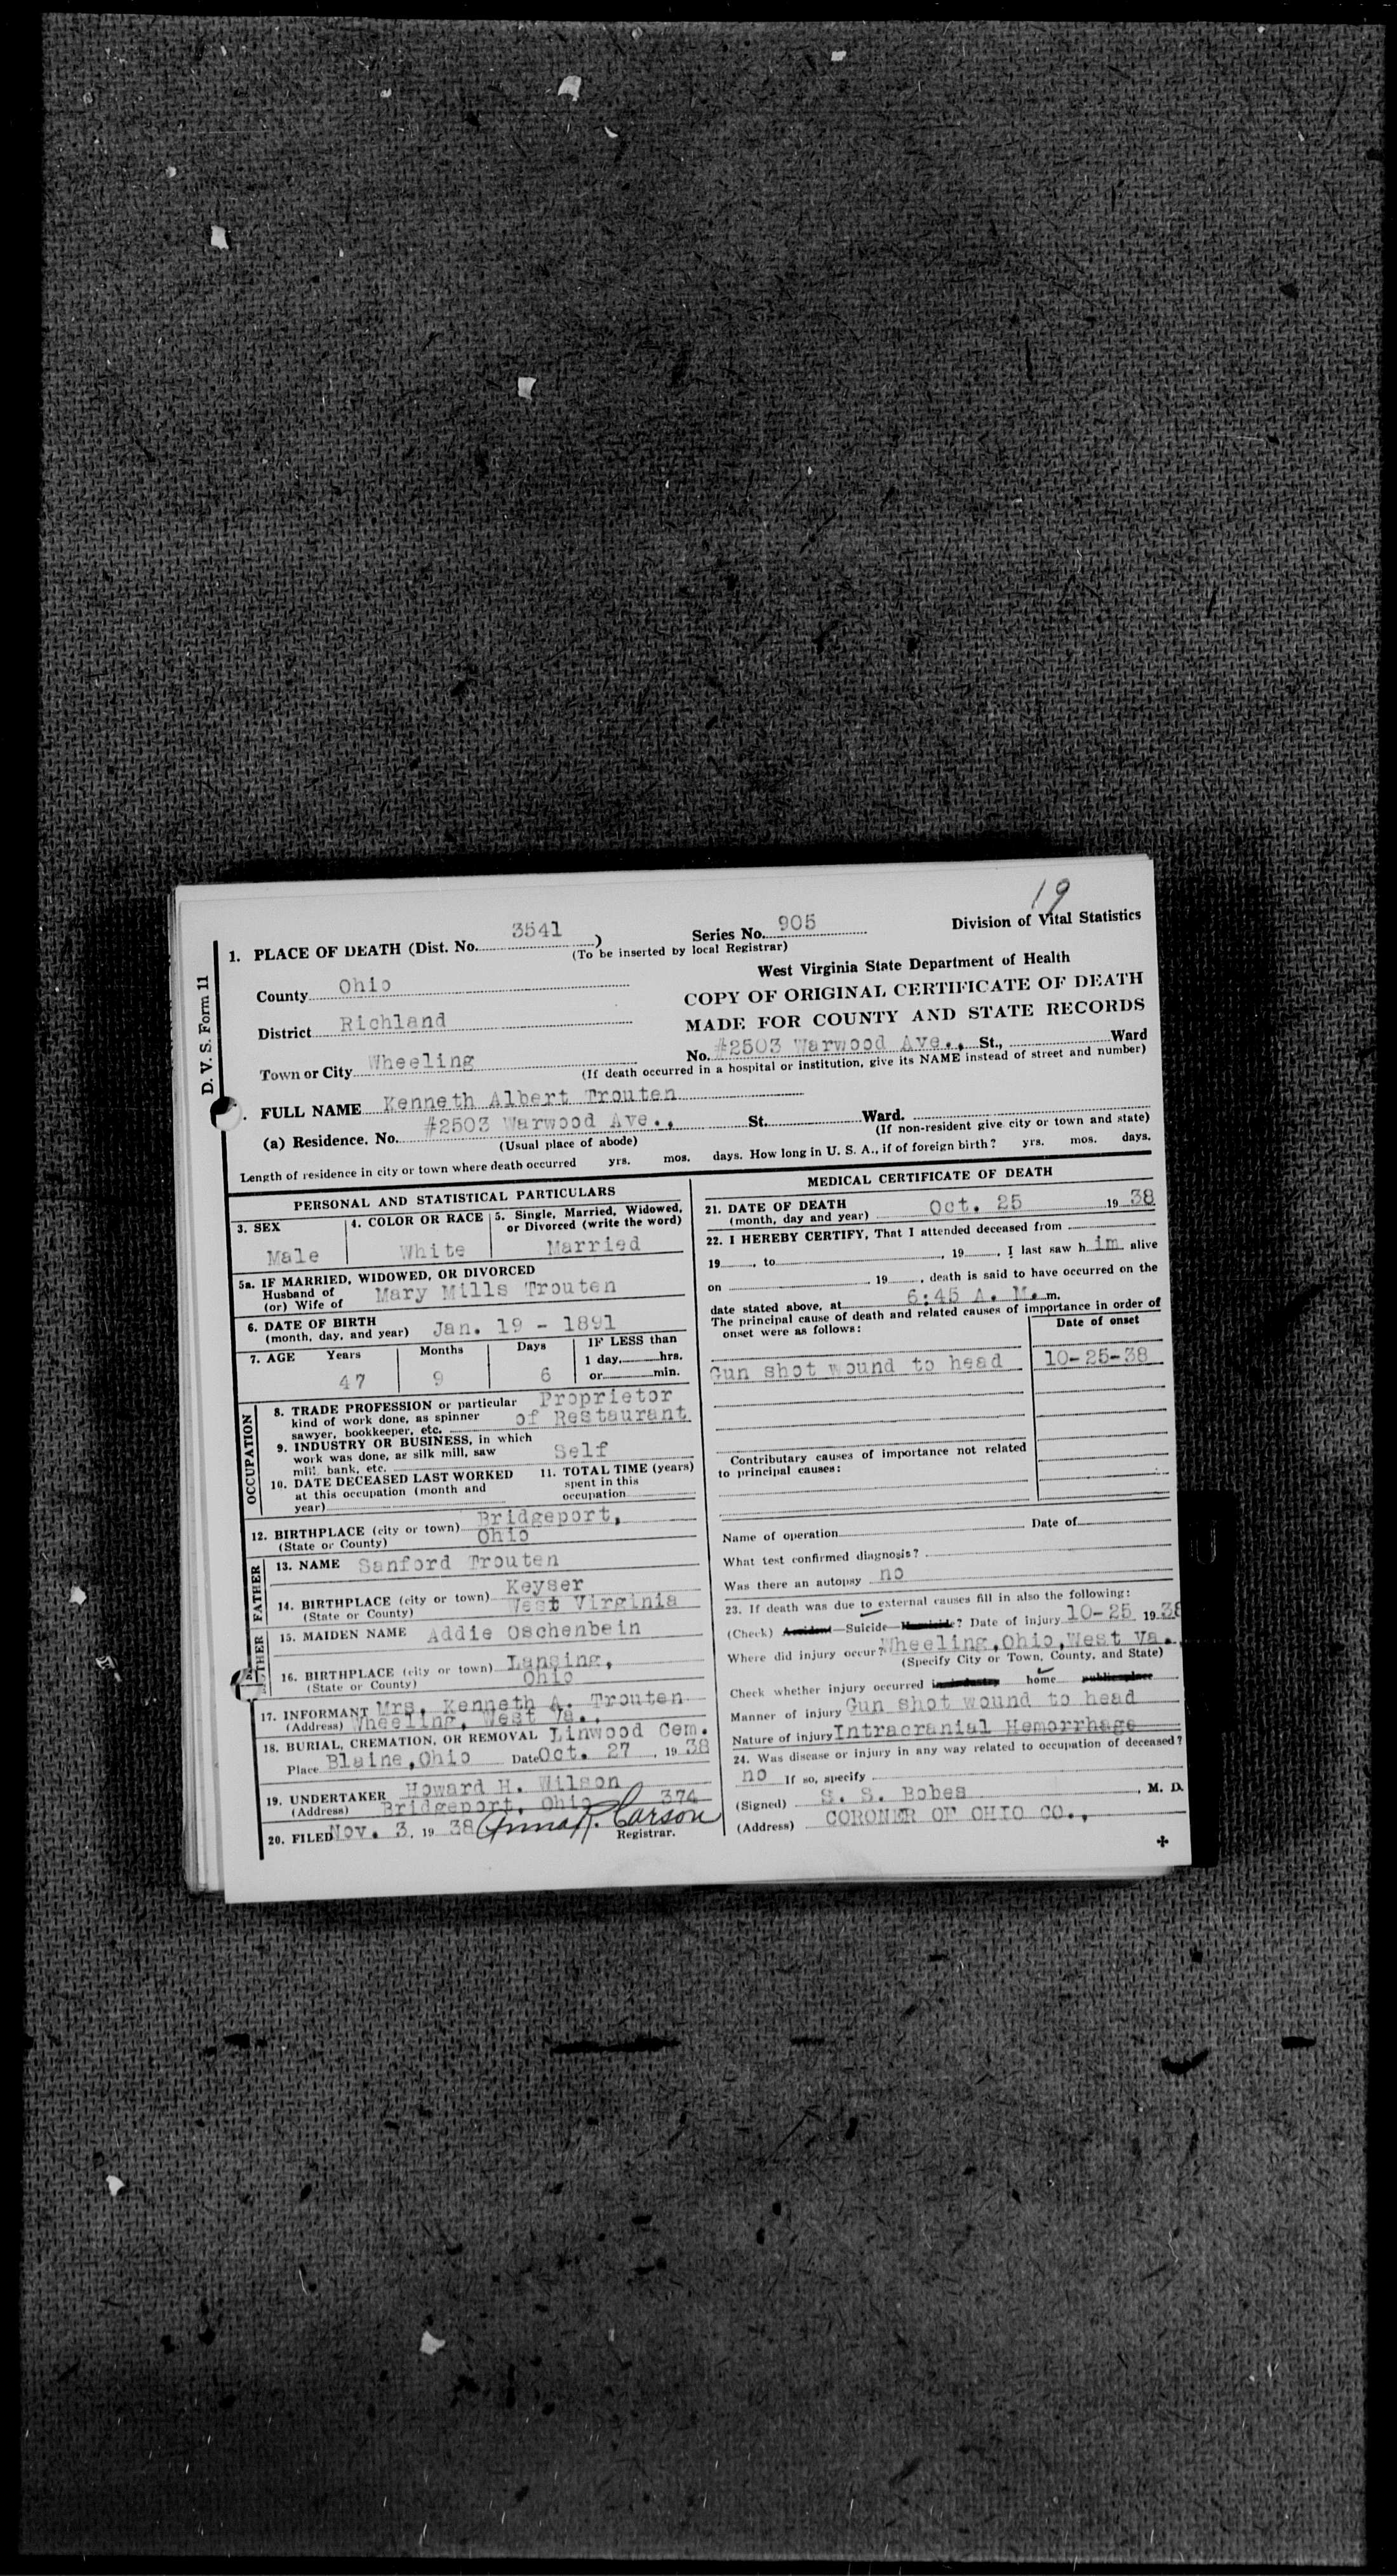 19
D. V. S. Form 11
1. PLACE OF DEATH (Dist. No. 3541 )
(To be inserted by local Registrar)
Series No. 905
Division of Vital Statistics
County Ohio
District Richland
Town or City Wheeling
West Virginia State Department of Health
COPY OF ORIGINAL CERTIFICATE OF DEATH
MADE FOR COUNTY AND STATE RECORDS
No. #2503 Warwood Ave., St., Ward
(If death occurred in a hospital or institution, give its NAME instead of street and number)
. FULL NAME Kenneth Albert Trouten
(a) Residence. No. #2503 Warwood Ave., St. Ward.
(Usual place of abode) (If non-resident give city or town and state)
Length of residence in city or town where death occurred yrs. mos. days. How long in U. S. A., if of foreign birth? yrs. mos. days.
PERSONAL AND STATISTICAL PARTICULARS
3. SEX
Male
4. COLOR OR RACE
White
5. Single, Married, Widowed,
or Divorced (write the word)
Married
5a. IF MARRIED, WIDOWED, OR DIVORCED
Husband of
(or) Wife of Mary Mills Trouten
6. DATE OF BIRTH
(month, day, and year) Jan. 19 - 1891
7. AGE Years Months Days IF LESS than
1 day, hrs.
or min.
47 9 6
OCCUPATION
8. TRADE PROFESSION or particular
kind of work done, as spinner
sawyer, bookkeeper, etc.
Proprietor
of Restaurant
9. INDUSTRY OR BUSINESS, in which
work was done, as silk mill, saw
mill, bank, etc.
Self
10. DATE DECEASED LAST WORKED
at this occupation (month and
year)
11. TOTAL TIME (years)
spent in this
occupation
12. BIRTHPLACE (city or town) Bridgeport,
(State or County) Ohio
FATHER
13. NAME Sanford Trouten
14. BIRTHPLACE (city or town) Keyser
(State or County) West Virginia
15. MAIDEN NAME Addie Oschenbein
16. BIRTHPLACE (city or town) Lansing,
(State or County) Ohio
17. INFORMANT Mrs. Kenneth A. Trouten
(Address) Wheeling, West Va.,
18. BURIAL, CREMATION, OR REMOVAL Linwood Cem.
Place Blaine, Ohio Date Oct. 27, 1938
19. UNDERTAKER Howard H. Wilson
(Address) Bridgeport, Ohio 374
20. FILED Nov. 3, 1938 Anna R. Carson
Registrar.
MEDICAL CERTIFICATE OF DEATH
21. DATE OF DEATH
(month, day and year) Oct. 25 1938
22. I HEREBY CERTIFY, That I attended deceased from
19 , to , 19 , I last saw him alive
on , 19 , death is said to have occurred on the
date stated above, at 6:45 A. M. m.
The principal cause of death and related causes of importance in order of
onset were as follows:
Date of onset
Gun shot wound to head 10-25-38
Contributory causes of importance not related
to principal causes:
Name of operation Date of
What test confirmed diagnosis?
Was there an autopsy no
23. If death was due to external causes fill in also the following:
(Check) Accident—Suicide—Homicide? Date of injury 10-25 1938
Where did injury occur? Wheeling, Ohio, West Va.,
(Specify City or Town, County, and State)
Check whether injury occurred in industry home public place
Manner of injury Gun shot wound to head
Nature of injury Intracranial Hemorrhage
24. Was disease or injury in any way related to occupation of deceased?
no If so, specify
(Signed) S. S. Bobes, M. D.
(Address) CORONER OF OHIO CO.,